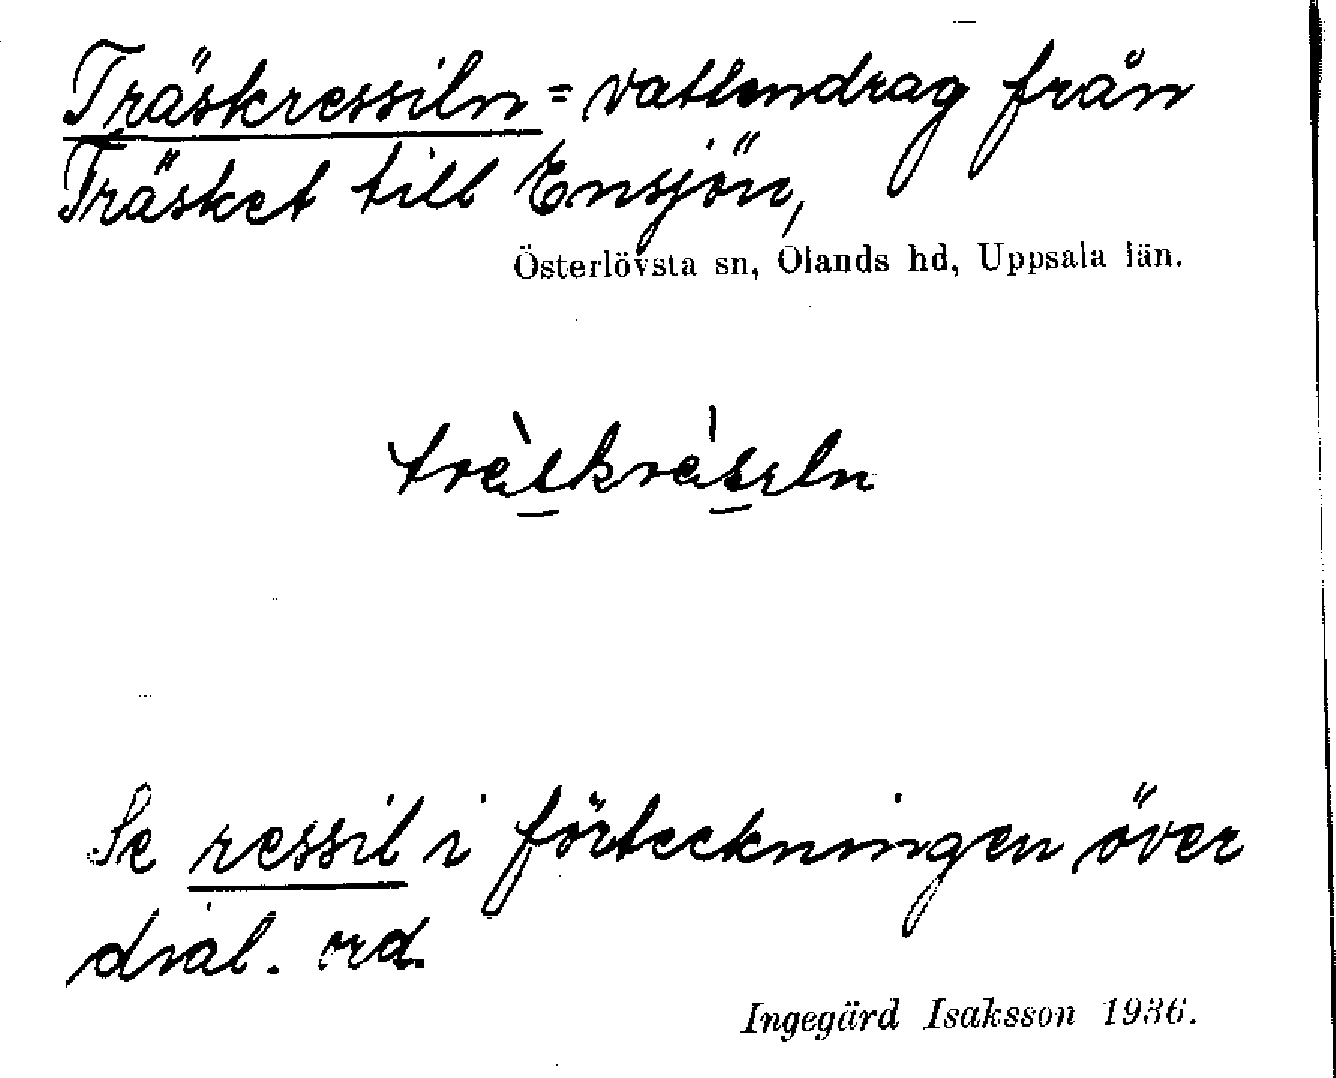 Träskressiln = vattendrag från
Träsket till Ensjön,
Österlövsta sn, Olands hd, Uppsala län.
Se ressil i förteckningen över
dial. ord.
Ingegärd Isaksson 1936.